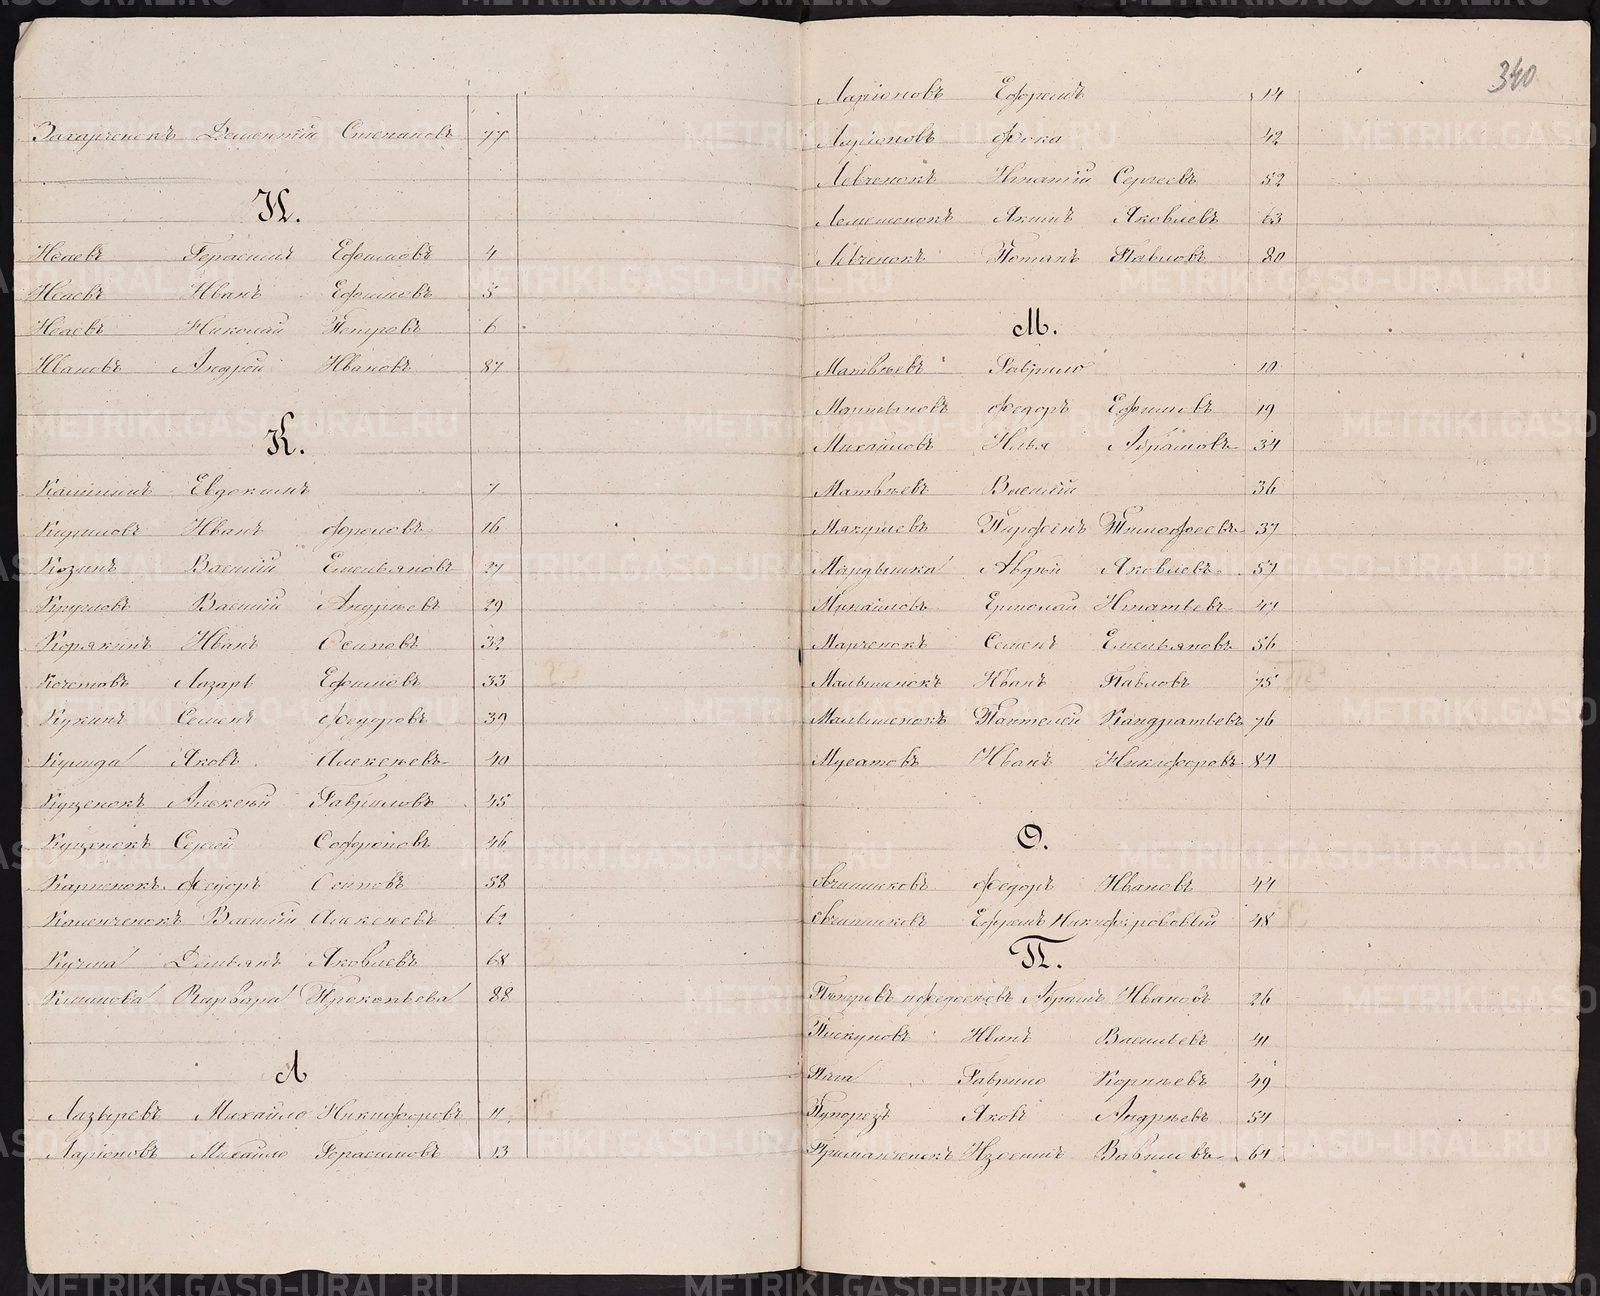 Захарченокъ Дементiй Степановъ 77
И.
Исаевъ Герасимъ Ефимовъ 4
Исаевъ Иванъ Ефимовъ 5
Исаевъ Николай Петровъ 6
Ивановъ Андрей Ивановъ 87
К.
Евдокимъ 7
Кириловъ Иванъ 16
Козинъ Василiй Емельяновъ 27
Кругловъ Василiй Андрѣевъ 29
Корякинъ Иванъ Осиповъ 32
Кочетовъ Лазарь Ефимовъ 33
Кукинъ Семенъ Феудровъ 39
Яковъ Алексѣевъ 40
Куценокъ Алексѣй Гавриловъ 45
Куценокъ Сергей Софроновъ 46
Карпенокъ Федоръ Осиповъ 58
Василiй Алексѣевъ 62
Кучма Демьянъ Яковлевъ 68
Климова Варвара Прокопьева 88
Л
Лазыревъ Михайло Никифоровъ 11
Ларiоновъ Михайло Герасимовъ 13
340
Ларiоновъ Ефремъ 14
Ларiоновъ Фока 42
Левченокъ Игнатiй Сергеевъ 52
Лемешенокъ Акимъ Яковлевъ 63
Левченокъ Потапъ Павловъ 80
М.
Матвѣевъ Гаврило 10
Мартыновъ Федоръ Ефимовъ 19
Михайловъ Илья Абрамовъ 34
Матвѣевъ Василiй 36
Макушевъ Парфенъ Тимофеевъ 37
Авдѣй Яковлевъ 57
Михайловъ Ермолай Игнатьевъ 47
Марченокъ Семенъ Емельяновъ 56
Малышенокъ Иванъ Павловъ 75
Малышенокъ Пантелей Кандратьевъ 76
Мусатовъ Иванъ Никифоровъ 84
О.
Овчинниковъ Федоръ Ивановъ 44
Овчинниковъ Ефремъ Никифорововый 48
П.
Петровъ Абрамъ Ивановъ 26
Пискуновъ Иванъ Васильевъ 41
Гаврило Корнѣевъ 49
Яковъ Андрѣевъ 54
Романченокъ Вавиловъ 64